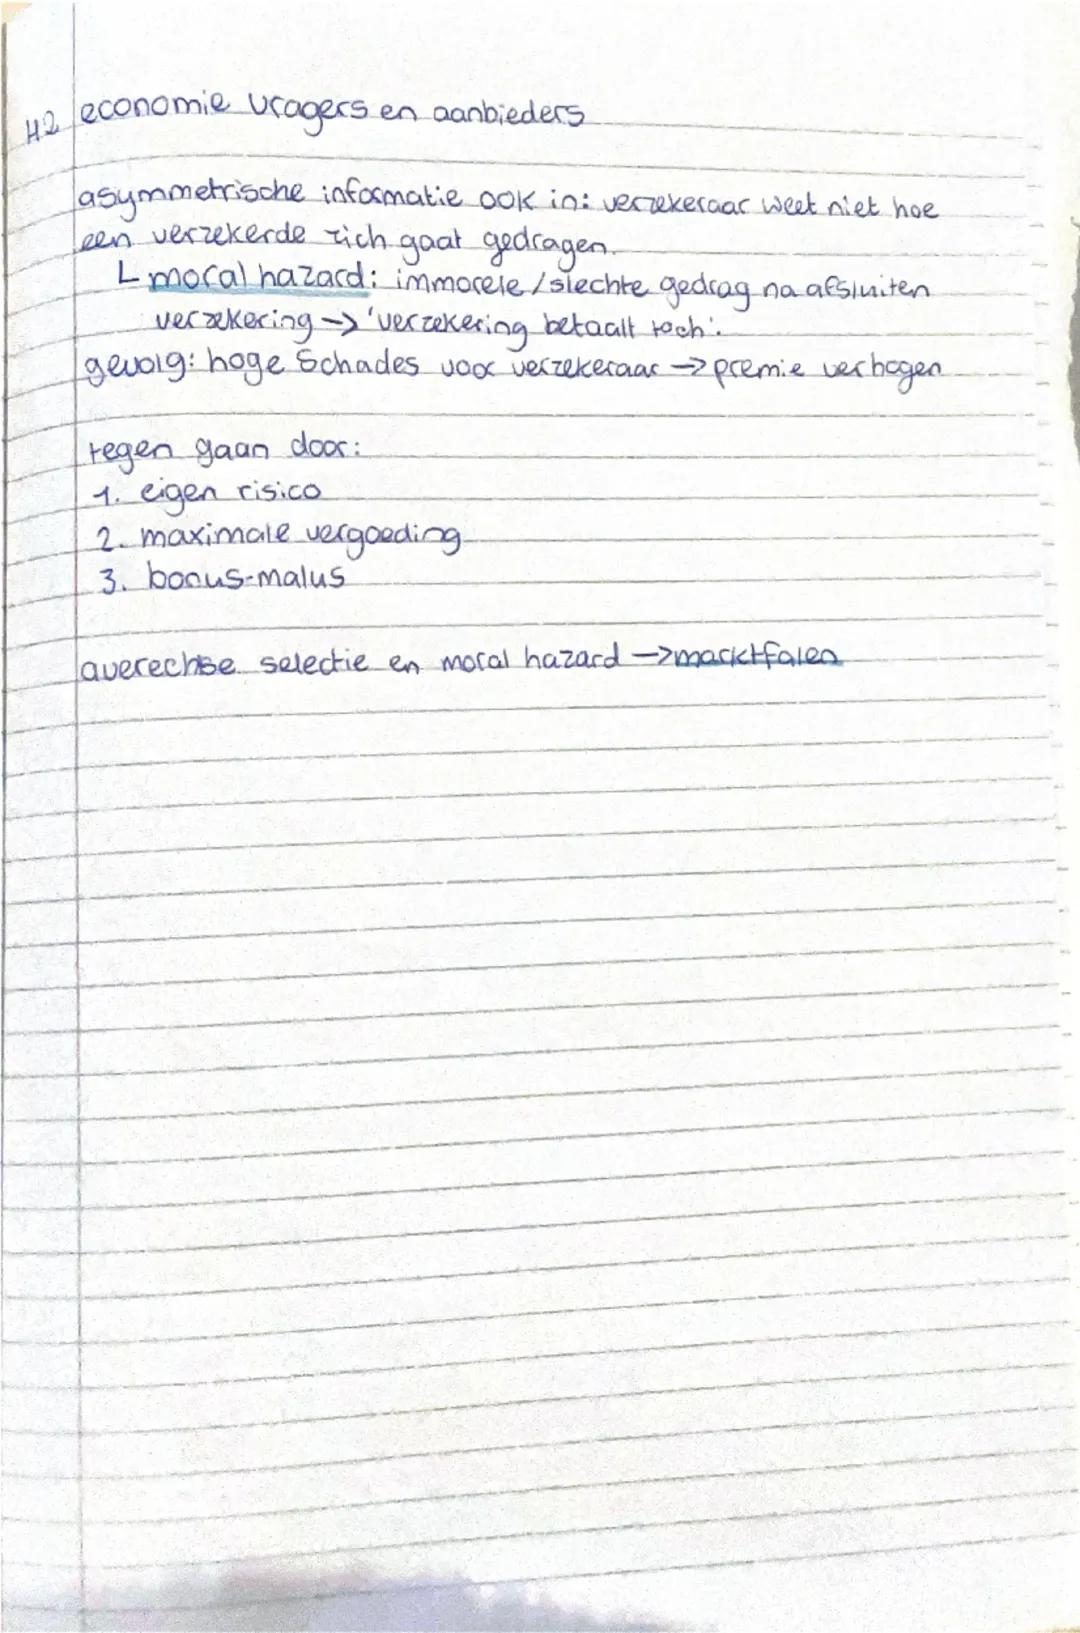 H2 economie vragers en aanbieders
asymmetrische informatie ook in: verzekeraar weet niet hoe
een verzekerde zich gaat gedragen.
moral hazard: immorele/slechte gedrag na afsluiten
verzekering → 'verzekering betaalt toch'.
gevolg: hoge schades voor verzekeraar → premie verhogen
tegen gaan door:
1. eigen risico
2. maximale vergoeding
3. bonus-malus
averechse selectie en moral hazard → marktfalen